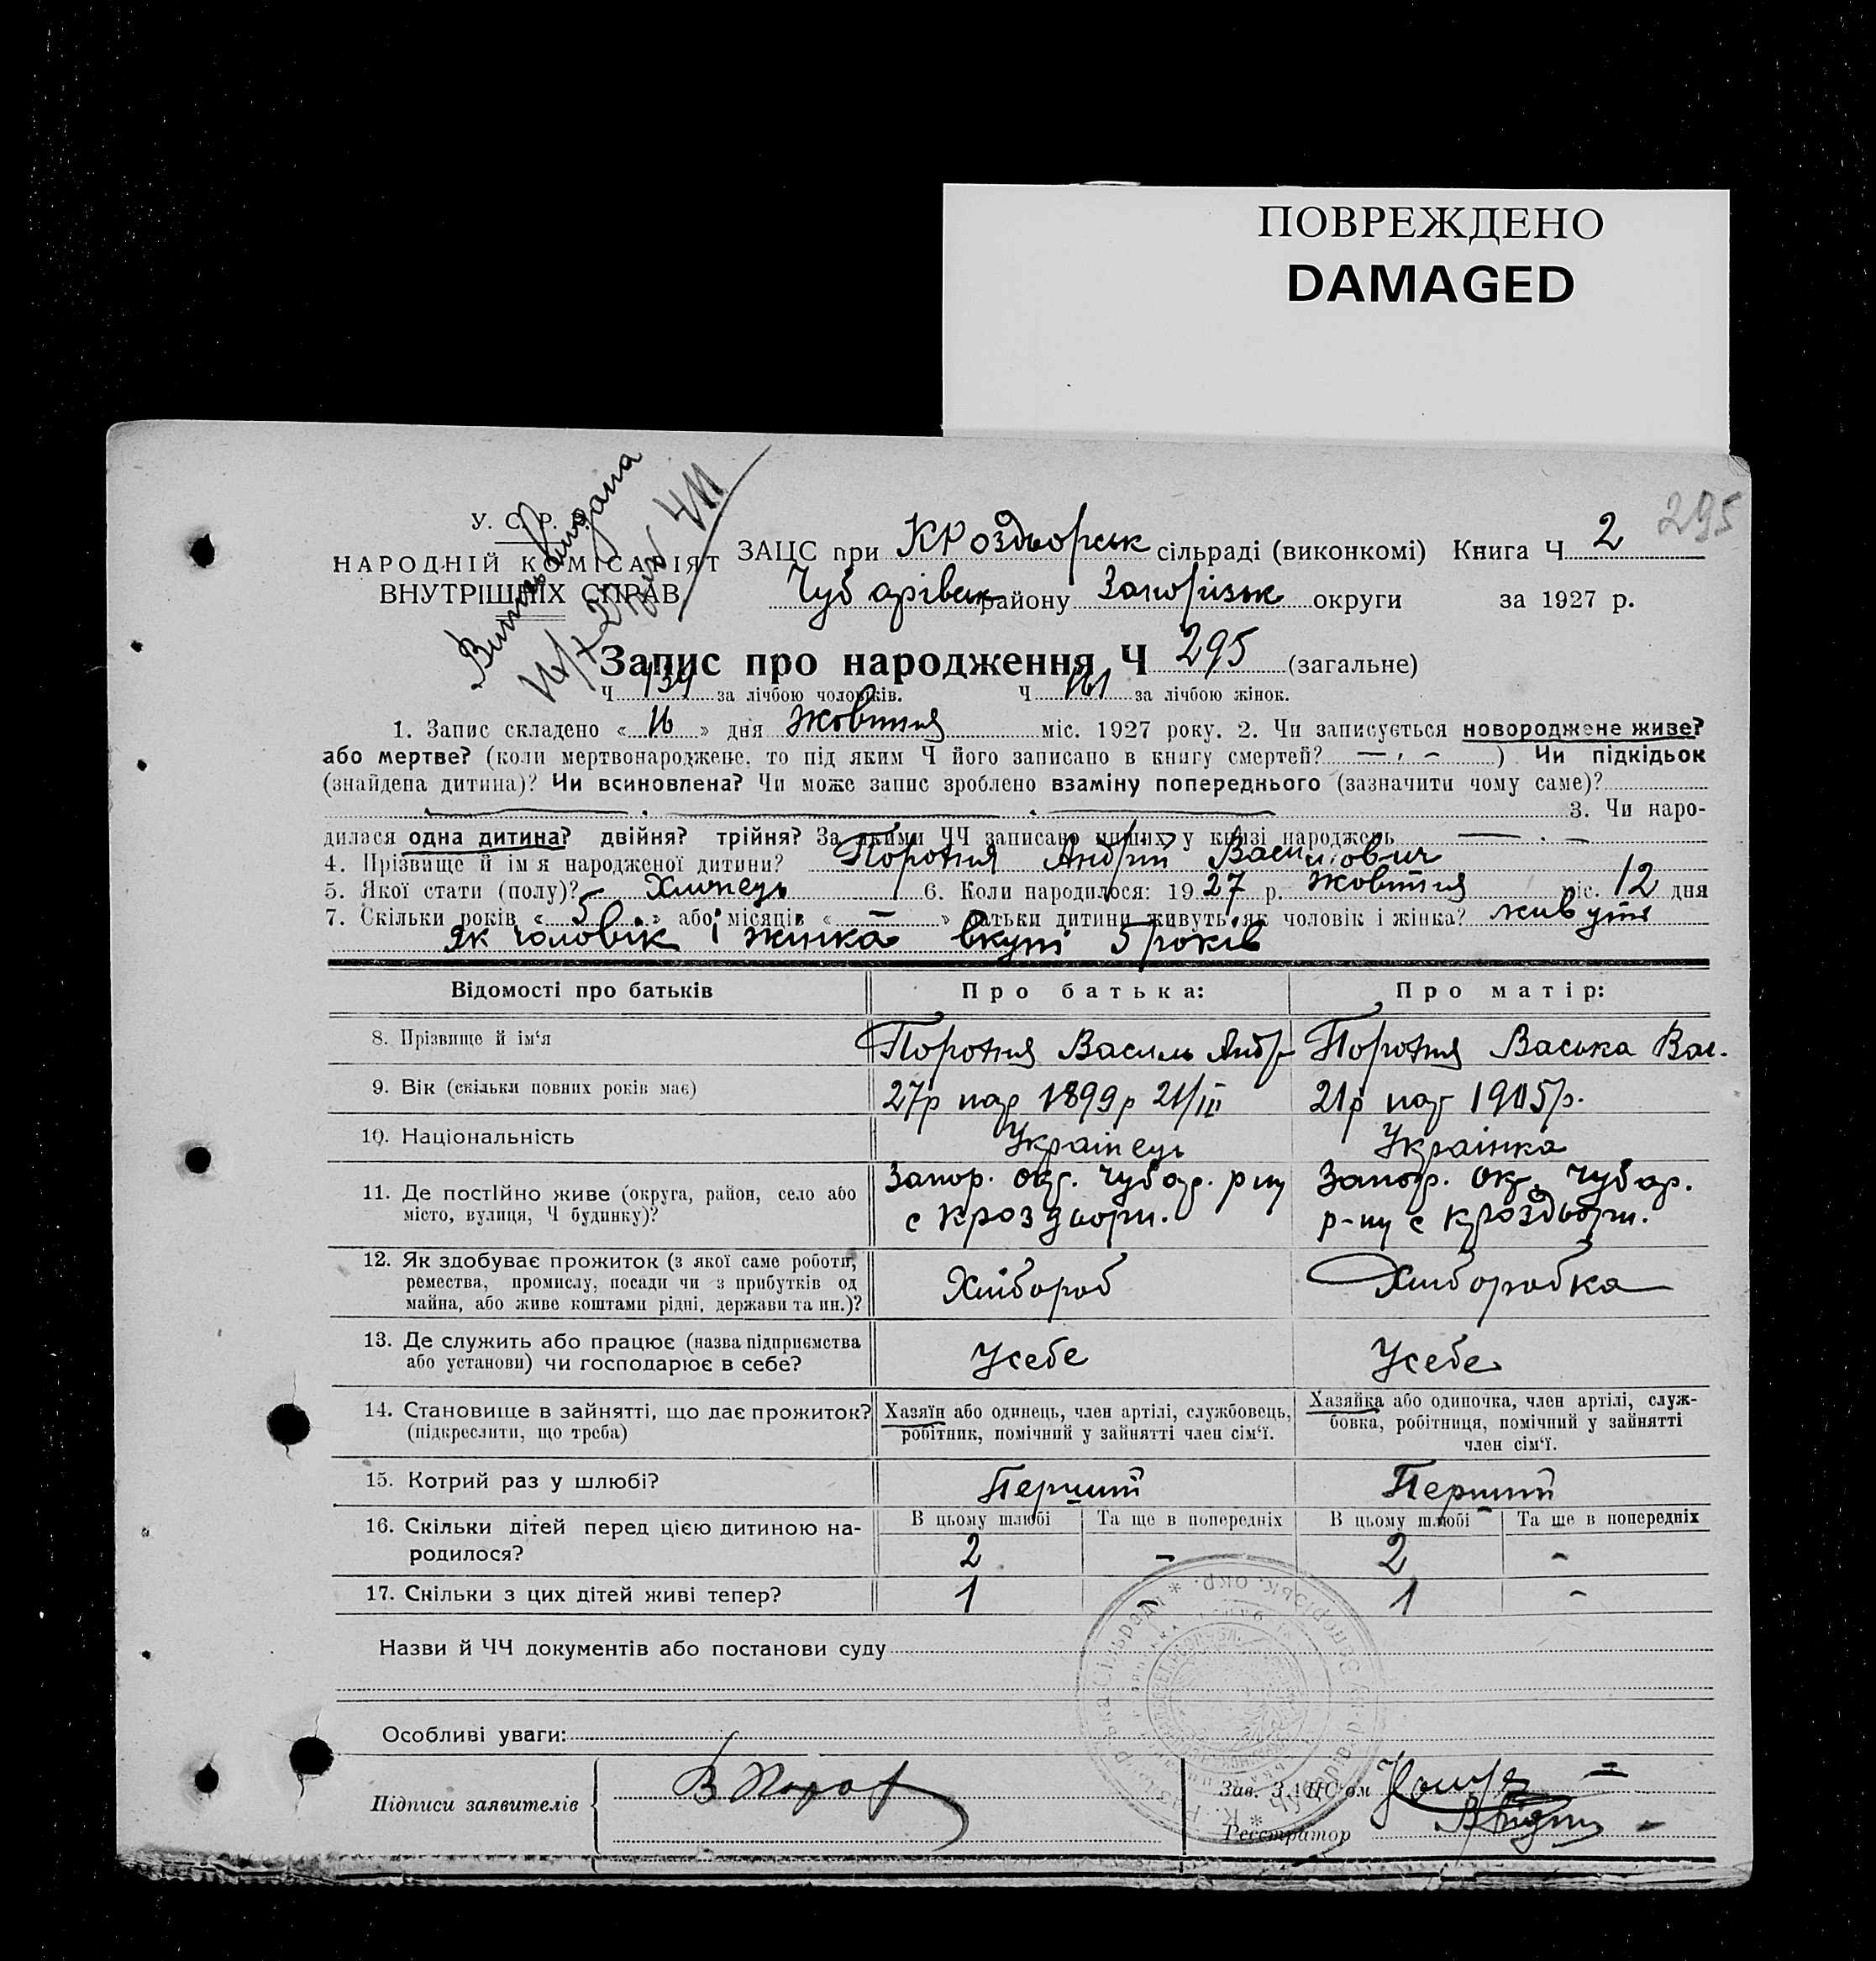 ПОВРЕЖДЕНО
DAMAGED
295
У. С. Р. Р.
НАРОДНІЙ КОМІСАРІЯТ
ВНУТРІШНІХ СПРАВ
Витяг видана
ЗАЦС при КРоздорськ сільраді (виконкомі) Книга Ч 2
Чубарівськ району Запорізьк округи за 1927 р.
Запис про народження Ч 295 (загальне)
Ч 134 за лічбою чоловіків. Ч 161 за лічбою жінок.
1. Запис складено «16» дня жовтня міс. 1927 року. 2. Чи записується новороджене живе?
або мертве? (коли мертвонароджене, то під яким Ч його записано в книгу смертей? — , — ) Чи підкідьок
(знайдена дитина)? Чи всиновлена? Чи може запис зроблено взаміну попереднього (зазначити чому саме)?
3. Чи наро-
дилася одна дитина? двійня? трійня? За якими ЧЧ записано инших у книзі народжень — . —
4. Прізвище й ім'я народженої дитини? Поротня Андрій Васильович
5. Якої стати (полу)? Хлипець 6. Коли народилося: 1927 р. жовтня міс. 12 дня
7. Скільки років «5» або місяців «—» батьки дитини живуть як чоловік і жінка? живуть
як чоловік і жинка вкупі 5 років
Відомості про батьків Про батька: Про матір:
8. Прізвище й ім'я Поротня Василь Андр Поротня Васька Вас.
9. Вік (скільки повних років має) 27р нар 1899р 21/III 21р нар 1905р.
10. Національність Українець Українка
11. Де постійно живе (округа, район, село або місто, вулиця, Ч будинку)? Запор. окр. Чубар. р-ну Запор. окр. Чубар.
с Кроздорн. р-ну с Кроздорн.
12. Як здобуває прожиток (з якої саме роботи,
ремества, промислу, посади чи з прибутків од
майна, або живе коштами рідні, держави та ин.)? Хлібороб Хліборобка
13. Де служить або працює (назва підприємства
або установи) чи господарює в себе? Усебе Усебе
14. Становище в зайнятті, що дає прожиток?
(підкреслити, що треба)
Хазяїн або одинець, член артілі, службовець,
робітник, помічний у зайнятті член сім'ї.
Хазяйка або одиночка, член артілі, служ-
бовка, робітниця, помічний у зайнятті
член сім'ї.
15. Котрий раз у шлюбі? Перший Перший
16. Скільки дітей перед цією дитиною на-
родилося?
В цьому шлюбі Та ще в попередніх В цьому шлюбі Та ще в попередніх
2 - 2 -
17. Скільки з цих дітей живі тепер? 1 - 1 -
Назви й ЧЧ документів або постанови суду
Особливі уваги:
Підписи заявителів В Порот
Зав. ЗАЦС'ом
Реєстратор